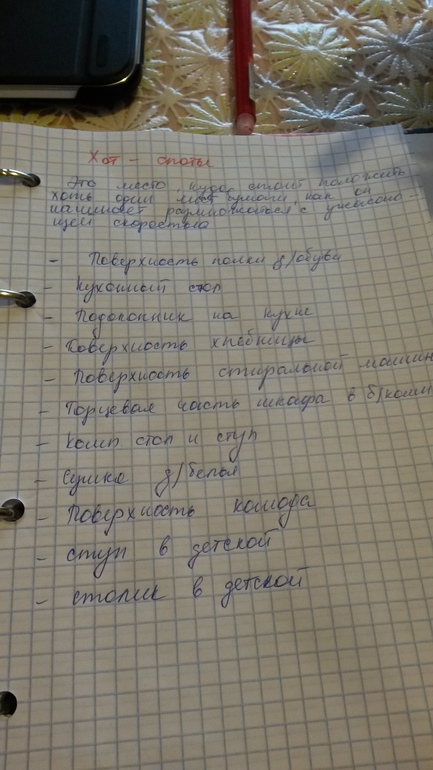 Хот - споты
Это место, куда стоит положить
хоть один лист бумаги, как он
начинает размножаться с ужасаю-
щей скоростью
- Поверхность полки д/обуви
- Кухонный стол
- Подоконник на кухне
- Поверхность хлебницы
- Поверхность стиральной машин
- Торцевая часть шкафа в б/комн
- комп стол и стул
- Сушка д/белья
- Поверхность комода
- стул в детской
- столик в детской